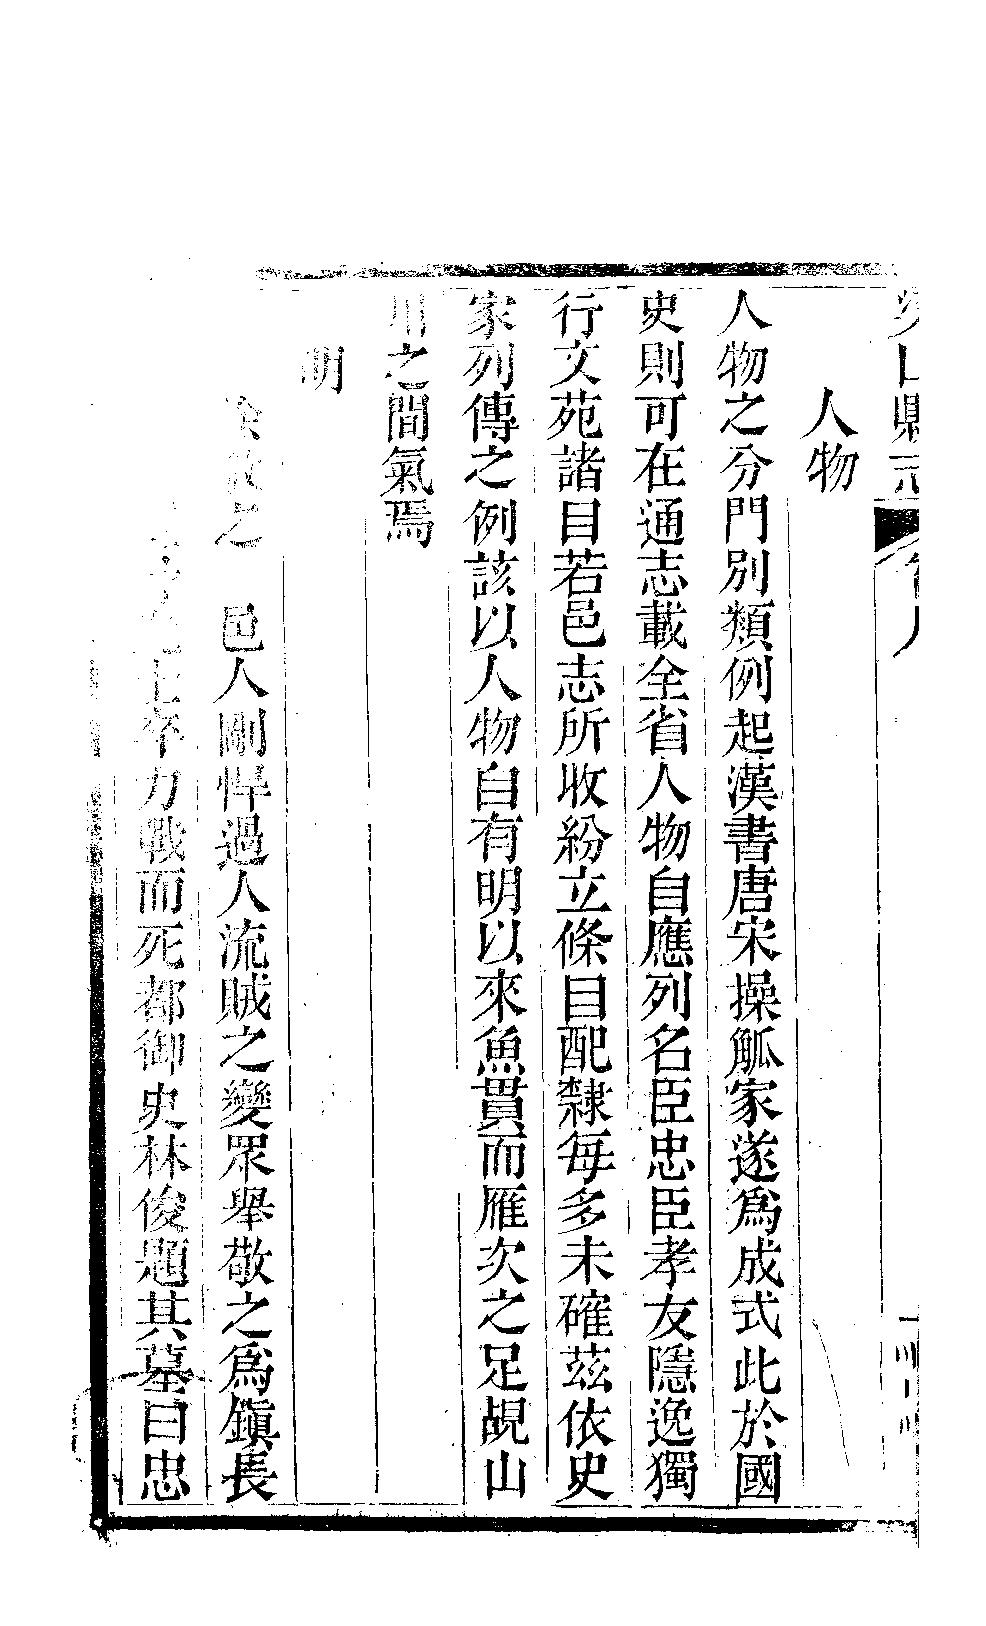 山縣志
人物
人物之分門別類例起漢書唐宋操觚家遂爲成式此於國
史則可在通志載全省人物自應列名臣忠臣孝友隱逸獨
行文苑諸目若邑志所收紛立條目配隸每多未確茲依史
家列傳之例該以人物自有明以來魚貫而雁次之足覘山
川之間氣焉
明
敬之　邑人剛悍過人流賊之變眾舉敬之爲鎭長
士卒力戰而死都御史林俊題其墓曰忠